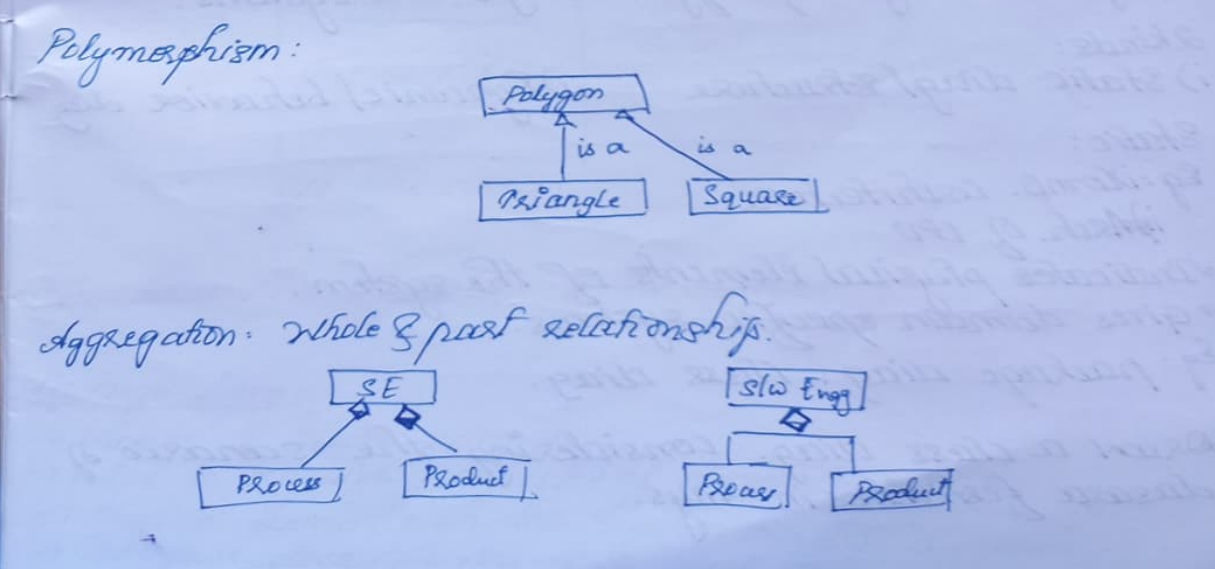 Polymorphism:
Polygon
is a
is a
Triangle
Square
Aggregation: Whole & part relationship.
SE
S/w Engg
Process
Product
Process
Product